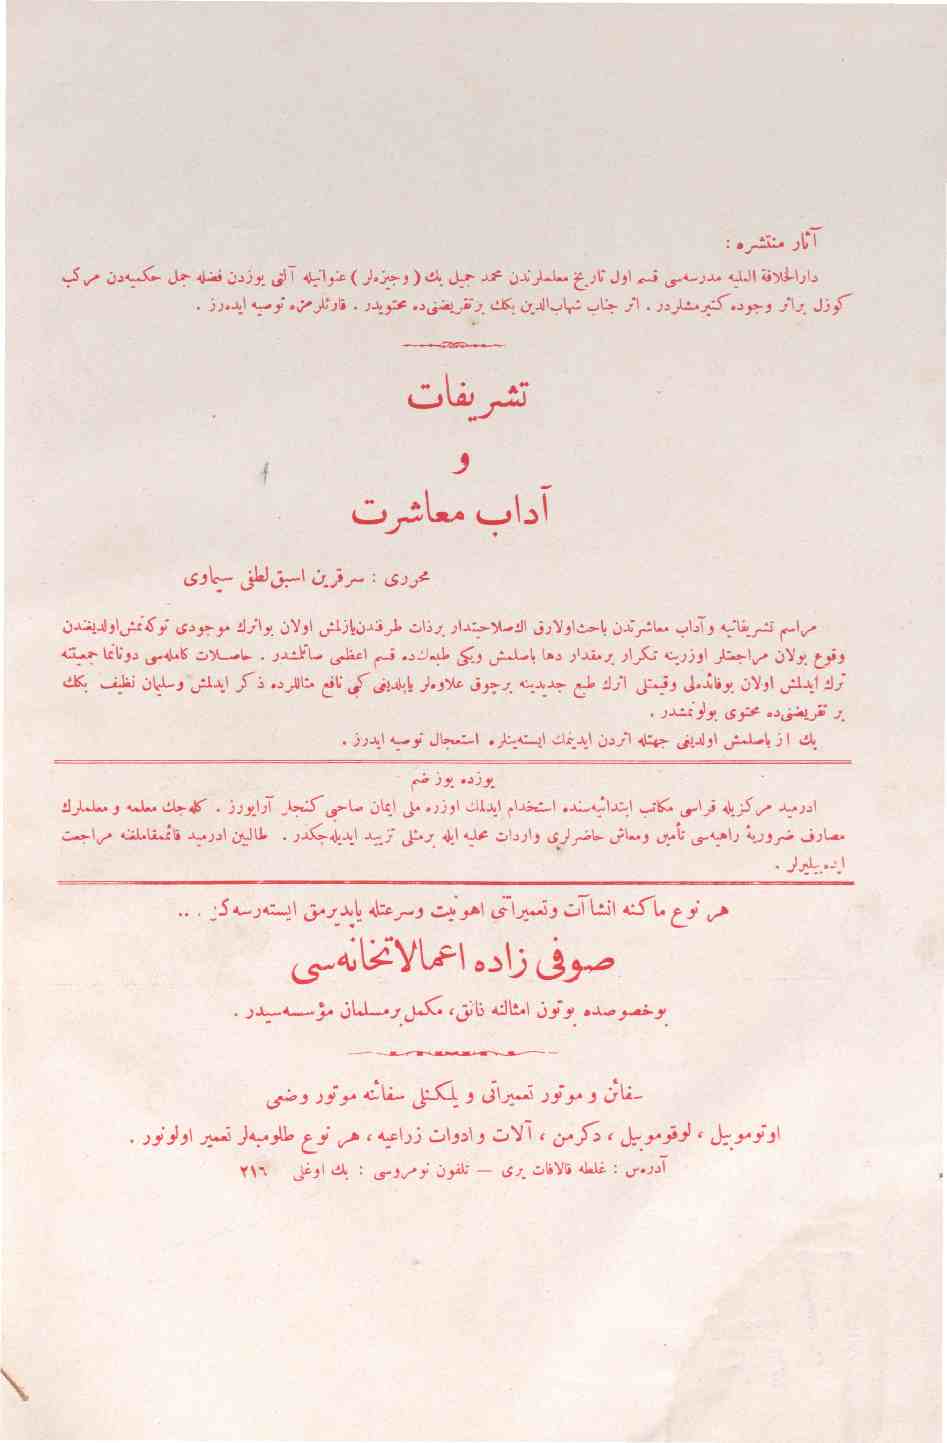 آثار منتشره :
دارالخلافة العليه مدرسه‌سى قسم اول تاريخ معلملرندن محمد جميل بك ( وجيزه‌لر ) عنوانيله آلتى يوزدن فضله جمل حكميه‌دن مركب
كوزل براثر وجوده كتيرمشلردر . اثر جناب شهاب‌الدين بكك برتقريضنى‌ده محتويدر . قارئلرمزه توصيه ايده‌رز .
تشريفات
و
آداب معاشرت
محررى : سرقرين اسبق لطفى سماوى
مراسم تشريفاتيه وآداب معاشرتدن باحث‌اولارق الصلاحيتدار برذات طرفندن‌يازلمش اولان بواثرك موجودى توكه‌نمش‌اولديغندن
وقوع بولان مراجعتلر اوزرينه تكرار برمقدار دها باصلمش ويكى طبعك‌ده قسم اعظمى صاتلمشدر . حاصلات كامله‌سى دونانما جمعيتنه
ترك ايدلمش اولان بوفائده‌لى وقيمتلى اثرك طبع جديدينه برچوق علاوه‌لر يابلديغى كبى نافع مثاللرده ذكر ايدلمش وسليمان نظيف بكك
بر تقريضنى‌ده محتوى بولونمشدر .
پك از باصلمش اولديغى جهتله اثردن ايدينمك ايسته‌ينلره استعجال توصيه ايدرز .
يوزده يوز ضم
ادرميد مركزيله قراسى مكاتب ابتدائيه‌سنده استخدام ايدلمك اوزره ملى ايمان صاحبى كنجلر آرايورز . كله‌جك معلمه و معلملرك
مصارف ضروريۀ راهيه‌سى تأمين ومعاش حاضرلرى واردات محليه ايله برمثلى تزييد ايديله‌جكدر . طالبين ادرميد قائممقاملغنه مراجعت
ايده‌بيليرلر .
هر نوع ماكنه انشاآت وتعميراتنى اهونيت وسرعتله ياپديرمق ايسته‌رسه‌كز . ..
صوفى زاده اعمالاتخانه‌سى
بوخصوصده بوتون امثالنه فائق، مكمل برمسلمان مؤسسه‌سيدر .
سفائن و موتور تعميراتى و يلكنلى سفائنه موتور وضعى
اوتوموبيل ، لوقوموبيل ، دكرمن ، آلات وادوات زراعيه ، هر نوع طلومبه‌لر تعمير اولونور .
آدره‌س : غلطه قالافات يرى — تلفون نومروسى : بك اوغلى ٢١٦